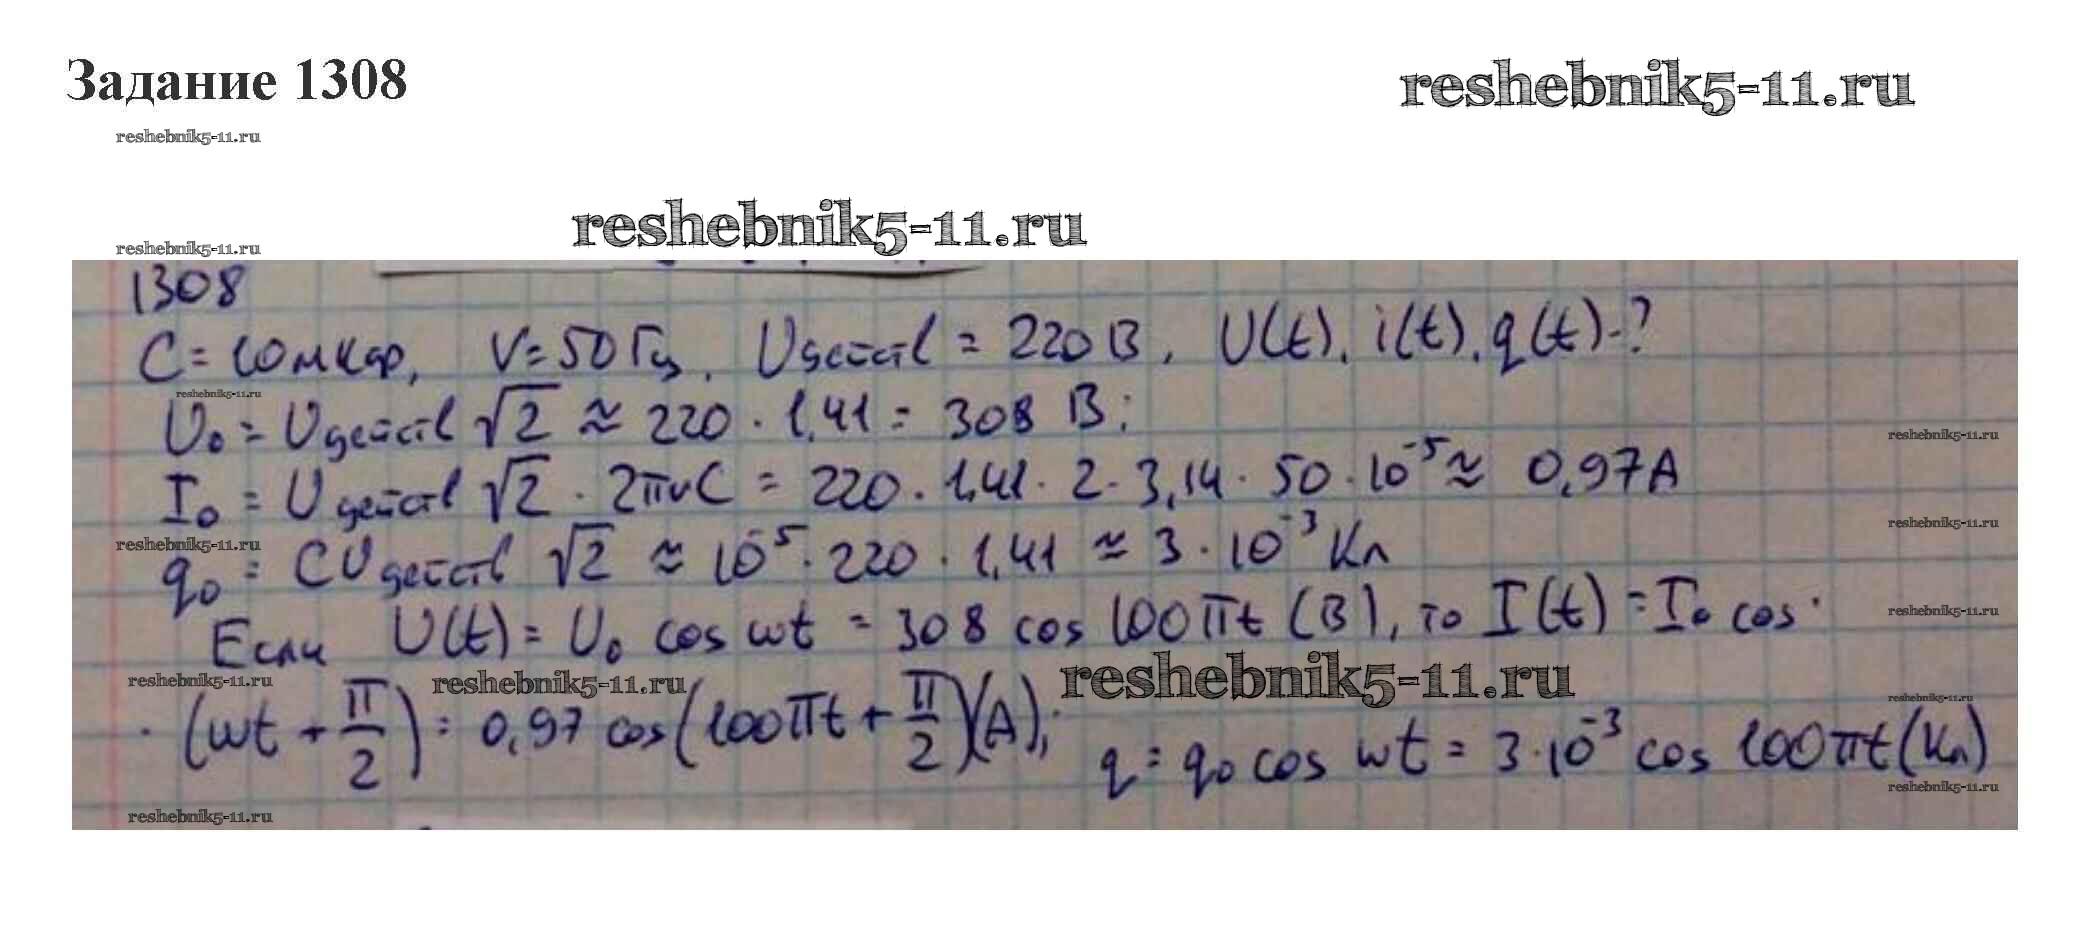 Задание 1308
reshebnik5-11.ru
reshebnik5-11.ru
reshebnik5-11.ru
reshebnik5-11.ru
1308
C = 10 мкф, V = 50 Гц, Uдейств = 220 В, U(t), i(t), q(t) - ?
reshebnik5-11.ru
U₀ = Uдейств √2 ≈ 220 · 1,41 = 308 В;
reshebnik5-11.ru
I₀ = Uдейств √2 · 2πνC = 220 · 1,41 · 2 · 3,14 · 50 · 10⁻⁵ ≈ 0,97 А
reshebnik5-11.ru
reshebnik5-11.ru
q₀ = CUдейств √2 ≈ 10⁻⁵ · 220 · 1,41 ≈ 3 · 10⁻³ Кл
Если U(t) = U₀ cos ωt = 308 cos 100πt (В), то I(t) = I₀ cos ·
reshebnik5-11.ru
reshebnik5-11.ru
reshebnik5-11.ru
reshebnik5-11.ru
reshebnik5-11.ru
· (ωt + π/2) = 0,97 cos (100πt + π/2)(А); q = q₀ cos ωt = 3·10⁻³ cos 100πt (Кл)
reshebnik5-11.ru
reshebnik5-11.ru